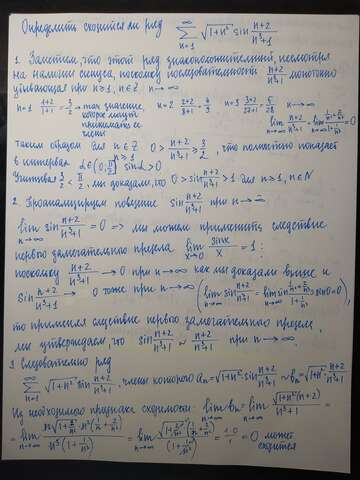 Определить сходится ли ряд \sum_{n=1}^{\infty} \sqrt{1+n^2} \sin\frac{n+2}{n^3+1}
1. Заметим, что этот ряд знакоположительный, несмотря
на наличие синуса, поскольку последовательность \frac{n+2}{n^3+1} монотонно
убывающая при n≥1, n∈Z n→∞
n=1 \frac{1+2}{1+1} = \frac{3}{2} → max значение, которое могут принимать ее члены n=2 \frac{2+2}{8+1} = \frac{4}{9} n=3 \frac{3+2}{27+1} = \frac{5}{28} n→∞ \lim_{n→∞} \frac{n+2}{n^3+1} =
таким образом для n∈Z n≥1 0 > \frac{n+2}{n^3+1} ≥ \frac{3}{2}, что полностью
в интервал α∈(0; \frac{π}{2}) sinα>0
Учитывая \frac{3}{2} < \frac{π}{2}, мы доказали, что 0 > \sin\frac{n+2}{n^3+1} > 1 для n≥1, n∈N
2. Проанализируем поведение \sin\frac{n+2}{n^3+1} при n→∞
\lim_{n→∞} \sin\frac{n+2}{n^3+1} = 0 => мы можем применить следствие
первого замечательного предела \lim_{x→0} \frac{\sin x}{x} = 1:
поскольку \frac{n+2}{n^3+1} → 0 при n→∞ как мы доказали выше и
\sin\frac{n+2}{n^3+1} → 0 тоже при n→∞ (\lim_{n→∞} \sin\frac{n+2}{n^3+1} = \lim_{n→∞} \sin\frac{\frac{1}{n^2}+\frac{2}{n^3}}{1+\frac{1}{n^3}} = \sin 0 = 0),
то применяя следствие первого замечательного предела,
мы утверждаем, что \sin\frac{n+2}{n^3+1} ~ \frac{n+2}{n^3+1} при n→∞.
3. Следовательно ряд
\sum_{n=1}^{\infty} \sqrt{1+n^2} \sin\frac{n+2}{n^3+1}, члены которого a_n = \sqrt{1+n^2} \sin\frac{n+2}{n^3+1} ~ b_n = \sqrt{1+n^2} \frac{n+2}{n^3+1}
Из необходимого признака сходимости \lim_{n→∞} b_n = \lim_{n→∞} \frac{\sqrt{1+n^2}(n+2)}{n^3+1} =
= \frac{1·0}{1} = 0 может сходится